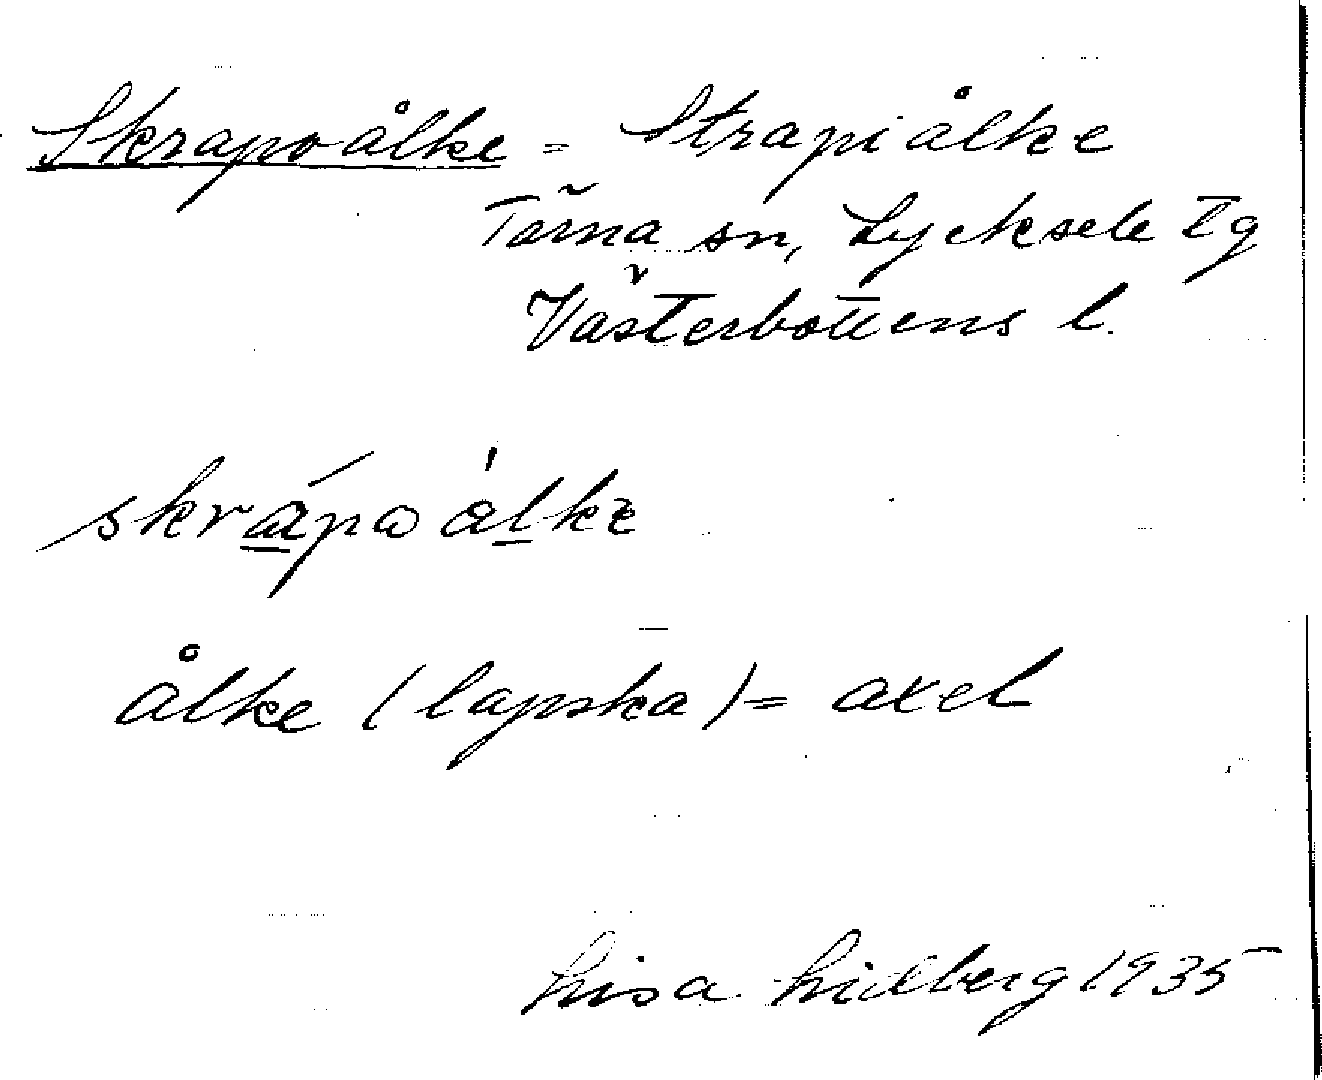 Skrapoålke = Strapiålke
Tärna sn, Lycksele tg
Västerbottens l.
skrápo ålke
ålke (lapska) = axel
Lisa Lidberg 1935